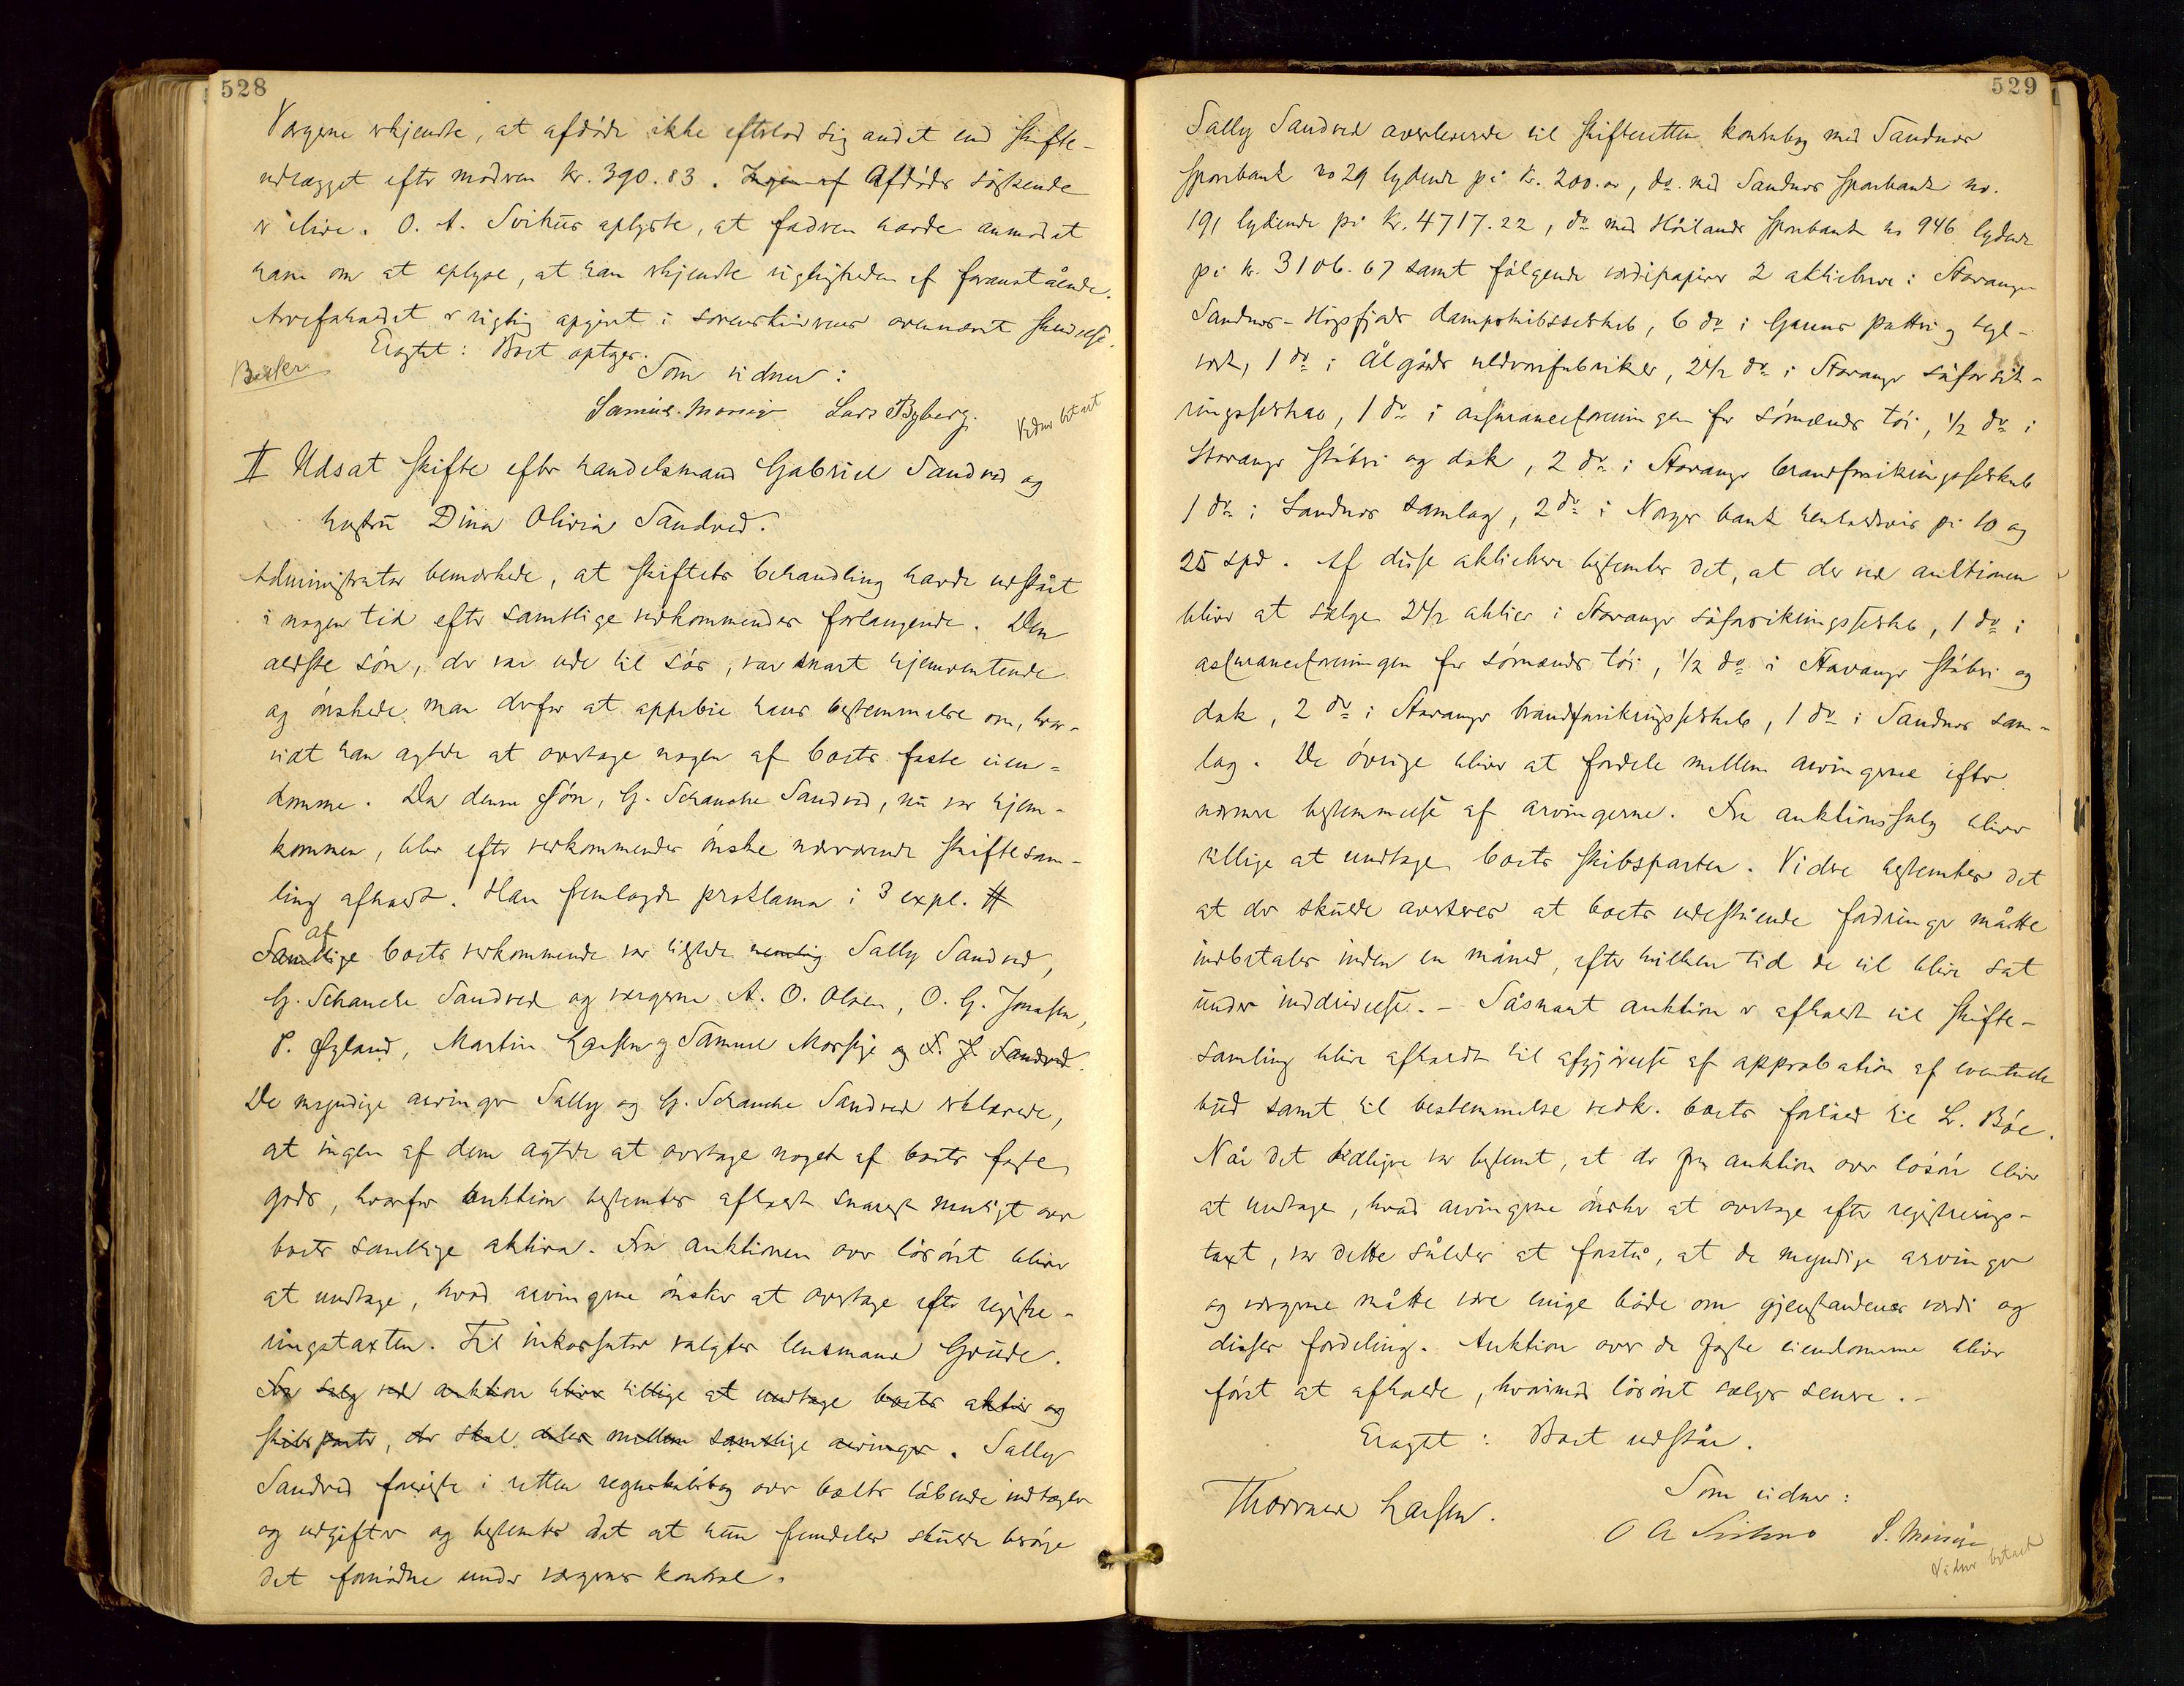 528
Værgerne erkjendte, at afdöde ikke efterlod sig andet end skifte-
udlægget efter modren kr. 390.83. Ingen af Afdödes söskende
er ilive. O. A. Svihus oplyste, at fadren havde anmodet
ham om at oplyse, at han erkjendte rigtigheden af foranstående.
Arvefaldet er rigtig opgivet i sorenskriverens ovennævnte skrivelse.
Eragtet: Boet optages.
Som vidner:
Samuel Mossige Lars Byberg.
Vidner betalt
II Udsat skifte efter handelsmand Gabriel Sandved og
hustru Dina Olivia Sandved.
Administrator bemærkede, at skiftets behandling havde udstået
i nogen tid efter samtlige vedkommendes forlangende. Den
ældste sön, der var ude til sös, var snart hjemventende
og önskede man derfor at appebie hans bestemmelse om, hvor-
vidt han agtede at overtage nogen af boets faste eien-
domme. Da denne sön, G. Schanche Sandved, nu var hjem-
kommen, blev efter vedkommendes önske nærværende skiftesam-
ling afholdt. Han fremlagde proklama i 3 expl. #
af
Samtlige boets vedkommende var tilstede nemlig Sally Sandved,
G. Schanche Sandved og værgerne A. O. Olsen, O. G. Jonassen,
P. Øgland, Martin Larsen og Samuel Mossige og F. J. Sandved.
De myndige arvinger Sally og G. Schanche Sandved erklærede,
at ingen af dem agtede at overtage noget af boets faste
gods, hvorfor auktion bestemtes afholdt snarest muligt over
boets samtlige aktiva. Fra auktionen over lösöret bliver
at undtage, hvad arvingerne önsker at overtage efter registre-
ringstaxten. Til inkassator valgtes lensmand Grude.
Fra salg ved auktion bliver tillige at undtage boets aktier og
skibsparter, der skal deles mellem samtlige arvinger. Sally
Sandved foreviste i retten regnskabsbog over boets löbende indtægter
og udgifter og bestemtes det at hun fremdeles skulde besörge
det fornödne under værgernes kontrol.
529
Sally Sandved overleverede til skifteretten kontrabog med Sandnes
sparebank no 29 lydende på kr. 200.00, do. med Sandnes sparebank no.
191 lydende på kr. 4717.22, do med Höilands sparebank no 946 lydende
på kr. 3106.67 samt fölgende værdipapirer 2 aktiebreve i Stavanger
Sandnes-Högsfjords dampskibsselskab, 6 do i Ganns potteri og tegl-
værk, 1 do i Ålgårds uldvarefabriker, 2 1/2 do i Stavanger söforsik-
ringsselskab, 1 do i assuranceforeningen for sömænds töi, 1/2 do i
Stavanger stöberi og dok, 2 do i Stavanger brandforsikringsselskab
1 do i Sandnes samlag, 2 do i Norges bank henholdsvis på 10 og
25 spd. Af disse aktiebreve bestemtes det, at der ved auktionen
bliver at sælge 2 1/2 aktier i Stavanger söforsikringsselskab, 1 do i
assuranceforeningen for sömænds töi, 1/2 do i Stavanger stöberi og
dok, 2 do i Stavanger brandforsikringsselskab, 1 do i Sandnes sam-
lag. De övrige bliver at fordele mellem arvingerne efter
nærmere bestemmelse af arvingerne. Fra auktionssalg bliver
tillige at undtage boets skibsparter. Videre bestemtes det
at der skulde averteres at boets udestående fordringer måtte
indbetales inden en måned, efter hvilken tid de vil blive sat
under inddrivelse. - Såsnart auktion er afholdt vil skifte-
samling blive afholdt til afgjörelse af approbation af eventuelle
bud samt til bestemmelse vedk. boets forhold til L. Böe.
Når det tidligere var bestemt, at der fra auktion over lösöre bliver
at undtage, hvad arvingerne önsker at overtage efter registrerings-
taxt, var dette således at forstå, at de myndige arvinger
og værgerne måtte være enige både om gjenstandenes værdi og
disses fordeling. Auktion over de faste eiendomme bliver
först at afholde, hvorimod lösöret sælges senere. -
Eragtet: Boet udstår.
Som vidner:
Thorvald Larsen.
O A Svihus S. Mossige
Vidner betalt